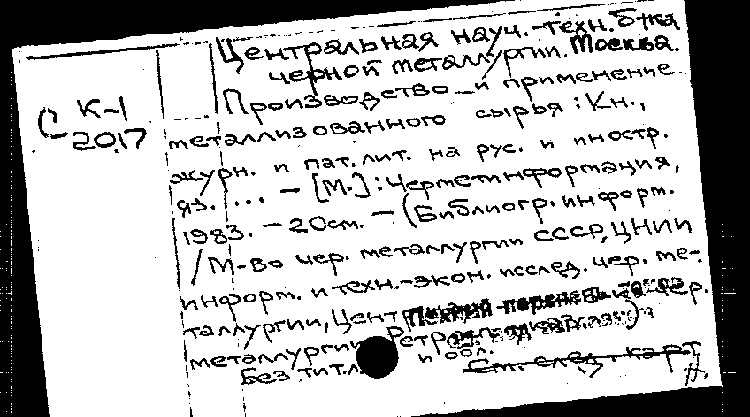 Центральная науч.-техн. б-ка
черной металлургии. Москва.
С К-1
2017
Производство и применение
металлизованного сырья: Кн.,
журн. и пат. лит. на рус. и иностр.
яз. ... - [М.]: Черметинформация,
1983. - 20см. - (Библиогр. информ.
/ М-во чер. металлургии СССР, ЦНИИ
информ. и техн.-экон. исслед. чер. ме-
таллургии, Центр. чер.
металлургии. Ретросп.
Без тит. л. и обл.
См. след. карт.